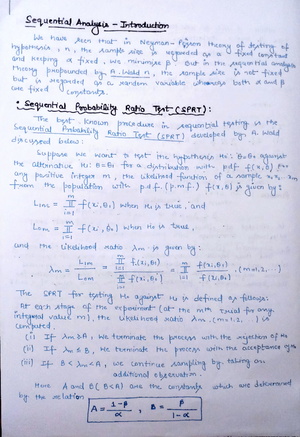 Sequential Analysis - Introduction
We have seen that in Neyman-Pearson theory of testing of
hypothesis, n, the sample size is regarded as a fixed constant
and keeping α fixed, we minimise β. But in the sequential analysis
theory propounded by A. Wald n, the sample size is not fixed
but is regarded as a random variable whereas both α and β
are fixed constants.
• Sequential Probability Ratio Test (SPRT):
The best known procedure in sequential testing is the
Sequential Probability Ratio Test (SPRT) developed by A. Wald
discussed below:
Suppose we want to test the hypothesis H₀: θ=θ₀ against
the alternative H₁: θ=θ₁ for a distribution with pdf f(x,θ). For
any positive integer m, the likelihood function of a sample x₁, x₂, xm
from the population with p.d.f. (p.m.f.) f(x,θ) is given by:
L₁m = m∏i=1 f(xi, θ₁) when H₁ is true, and
L₀m = m∏i=1 f(xi, θ₀) when H₀ is true,
and the likelihood ratio λm is given by:
λm = L₁m / L₀m = m∏i=1 f(xi,θ₁) / m∏i=1 f(xi,θ₀) = m∏i=1 f(xi,θ₁) / f(xi,θ₀), (m=1,2,...)
The SPRT for testing H₀ against H₁ is defined as follows:
At each stage of the experiment (at the mth trial for any
integral value m), the likelihood ratio λm, (m=1,2,...) is
computed.
(i) If λm ≥ A, we terminate the process with the rejection of H₀
(ii) If λm ≤ B, we terminate the process with the acceptance of H₀
(iii) If B < λm < A, we continue sampling by taking an
additional observation.
Here A and B (B<A) are the constants which are determined
by the relation
A = 1-β / α , B = β / 1-α